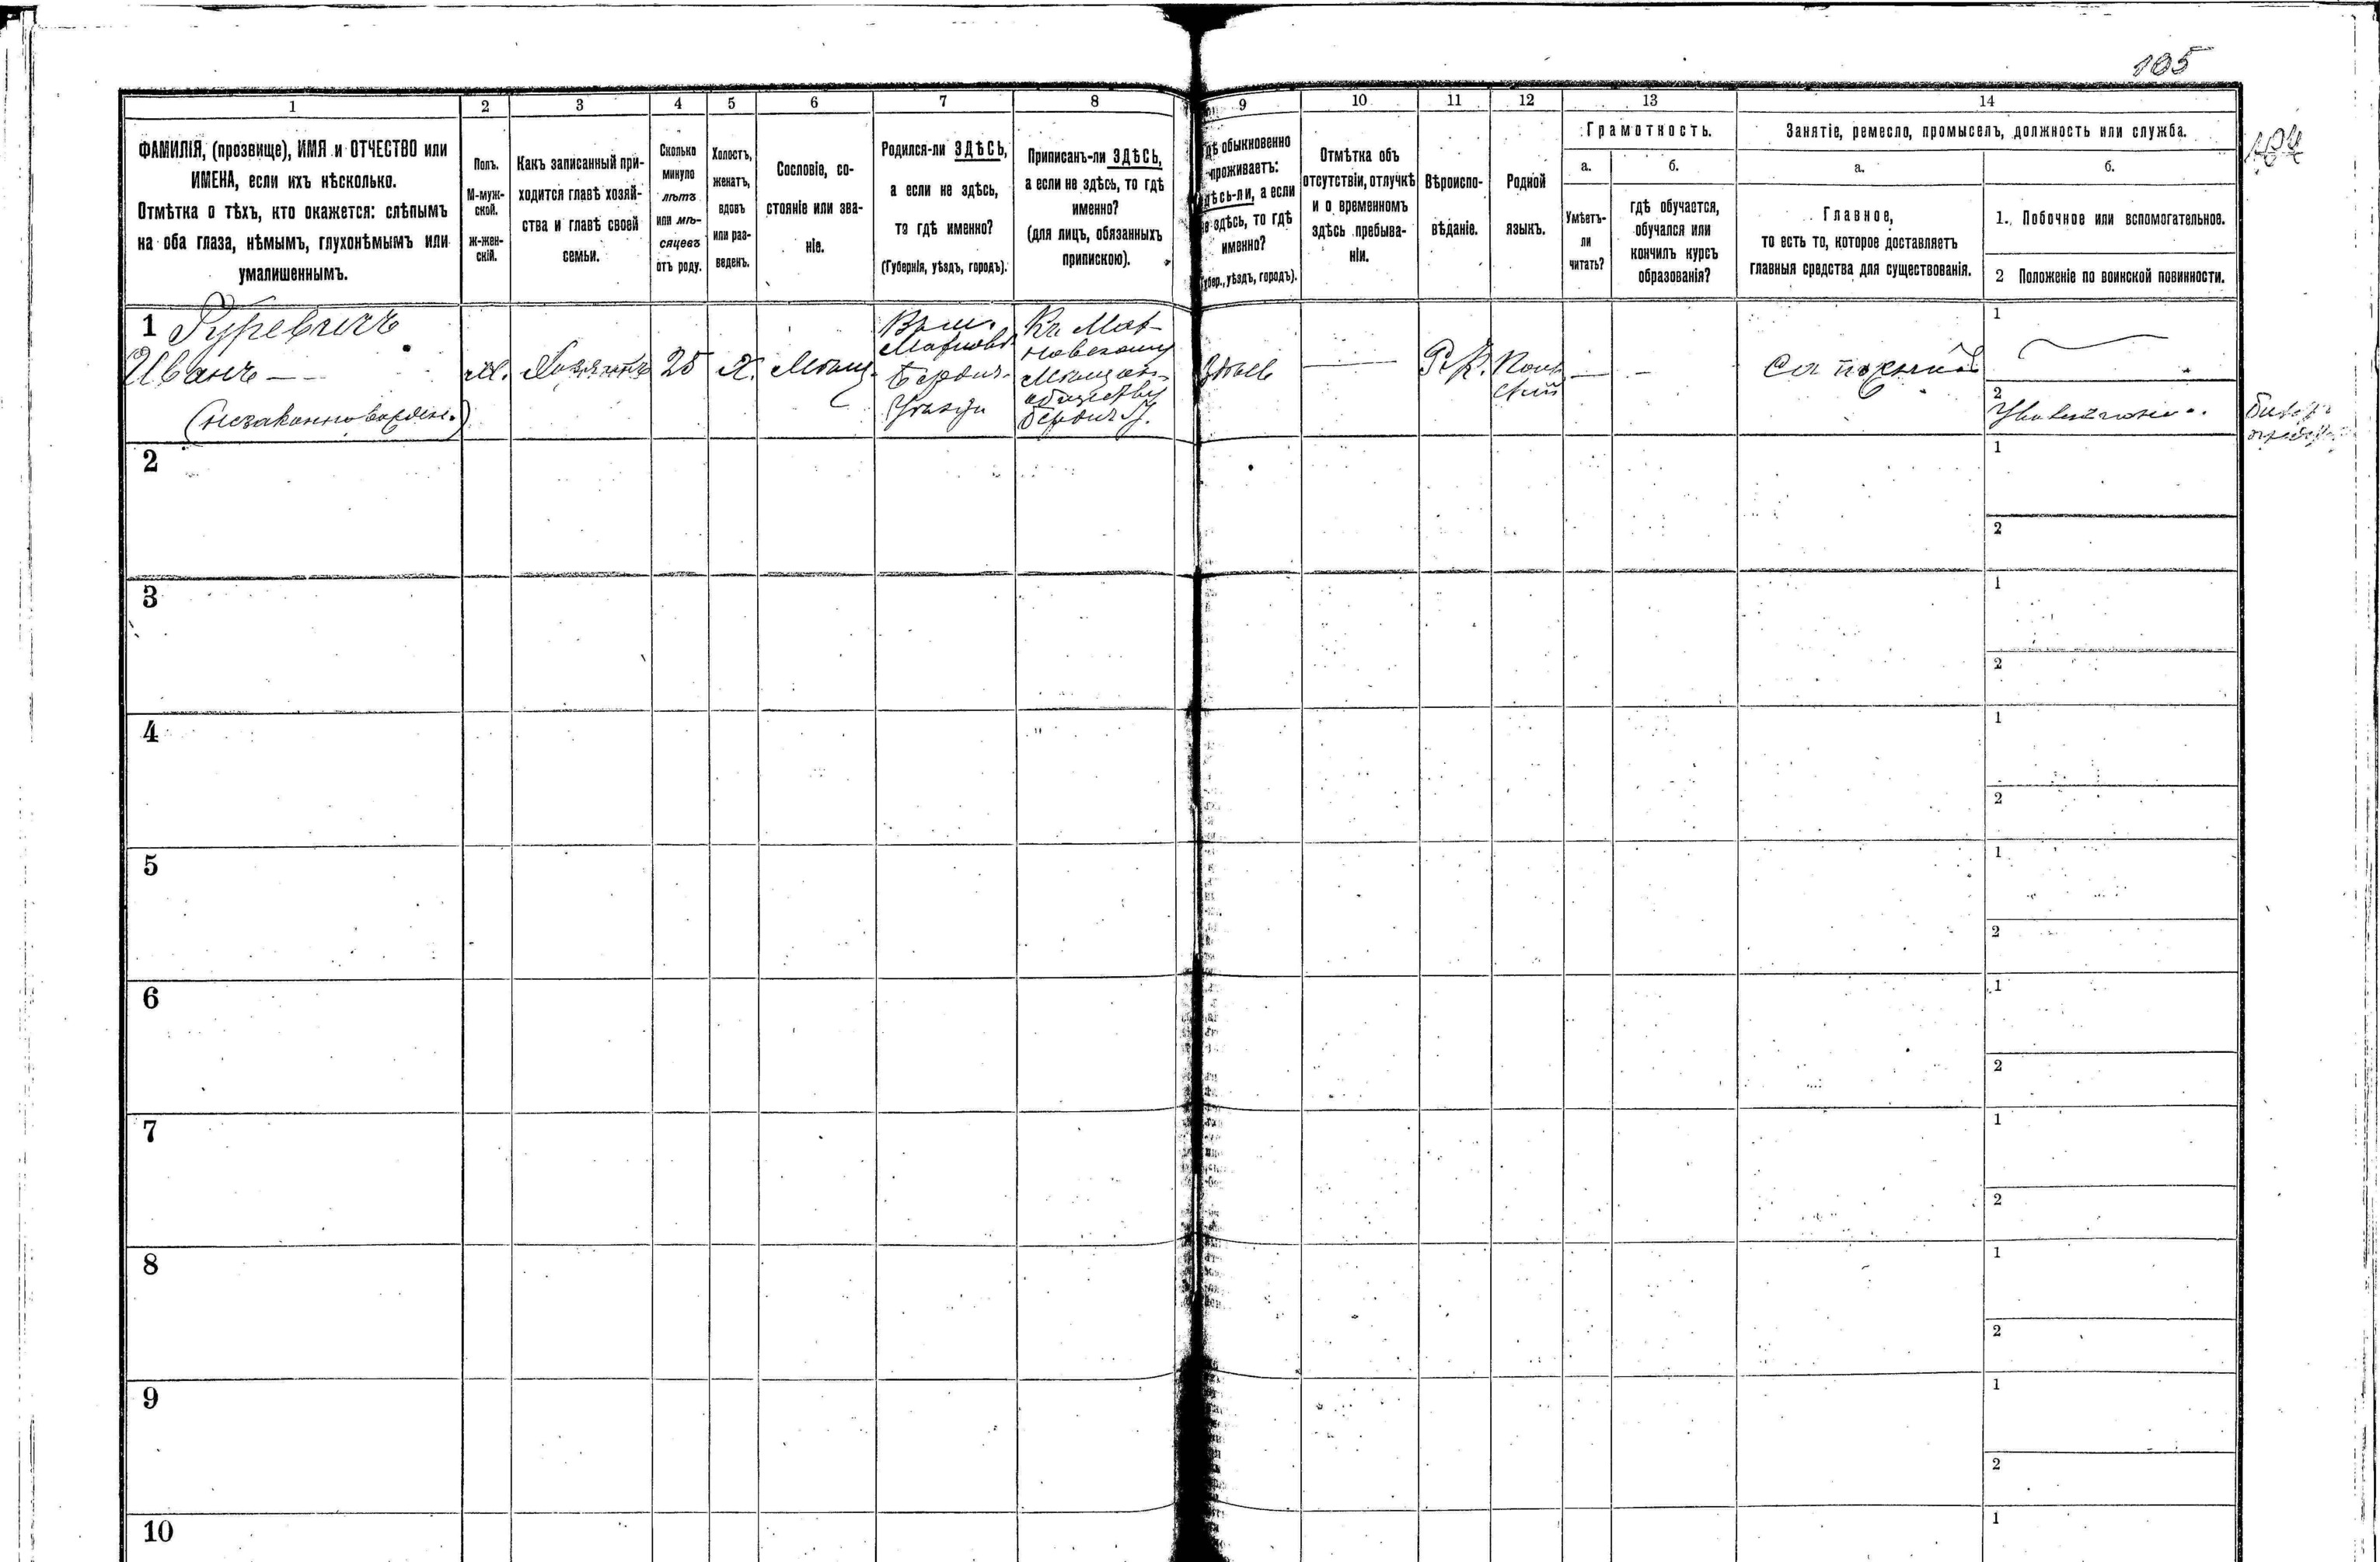 105
1
2
3
4
5
6
7
8
9
10
11
12
13
14
ФАМИЛІЯ, (прозвище), ИМЯ и ОТЧЕСТВО или
ИМЕНА, если ихъ нѣсколько.
Отмѣтка о тѣхъ, кто окажется: слѣпымъ
на оба глаза, нѣмымъ, глухонѣмымъ или
умалишеннымъ.
Полъ.
М-муж-
ской.
ж-жен-
скій.
Какъ записанный при-
ходится главѣ хозяй-
ства и главѣ своей
семьи.
Сколько
минуло
лѣтъ
или мѣ-
сяцевъ
отъ роду.
Холостъ,
женатъ,
вдовъ
или раз-
веденъ.
Сословіе, со-
стояніе или зва-
ніе.
Родился-ли ЗДѢСЬ,
а если не здѣсь,
то гдѣ именно?
(Губернія, уѣздъ, городъ).
Приписанъ-ли ЗДѢСЬ,
а если не здѣсь, то гдѣ
именно?
(для лицъ, обязанныхъ
припискою).
Гдѣ обыкновенно
проживаетъ:
здѣсь-ли, а если
не здѣсь, то гдѣ
именно?
(Губер., уѣздъ, городъ).
Отмѣтка объ
отсутствіи, отлучкѣ
и о временномъ
здѣсь пребыва-
ніи.
Вѣроиспо-
вѣданіе.
Родной
языкъ.
Грамотность.
а.
Умѣетъ-
ли
читать?
б.
гдѣ обучается,
обучался или
кончилъ курсъ
образованія?
Занятіе, ремесло, промыселъ, должность или служба.
а.
Главное,
то есть то, которое доставляетъ
главныя средства для существованія.
б.
1. Побочное или вспомогательное.
2 Положеніе по воинской повинности.
1 Гуревичъ
Иванъ —
(незаконнорожден.)
м.
25
Х.
Мѣщ.
Бердич.
Уѣзда
Къ Мах-
новскому
Мѣщан.
обществу
Бердич. У.
Здѣсь
—
Р.К.
Поль
скій
—
—
Сапожникъ
1
2
2
1
2
3
1
2
4
1
2
5
1
2
6
1
2
7
1
2
8
1
2
9
1
2
10
1